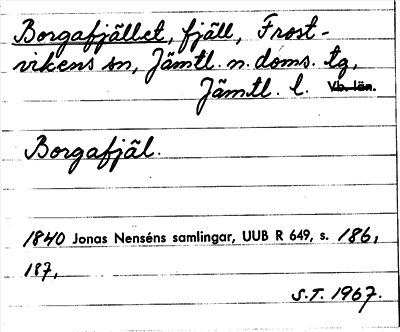 Borgafjället, fjäll, Frost-
vikens sn, Jämtl. n. doms. tg,
Jämtl. l. Vb. län.
Borgafjäl.
1840 Jonas Nenséns samlingar, UUB R 649, s. 186,
187,
S.T. 1967.